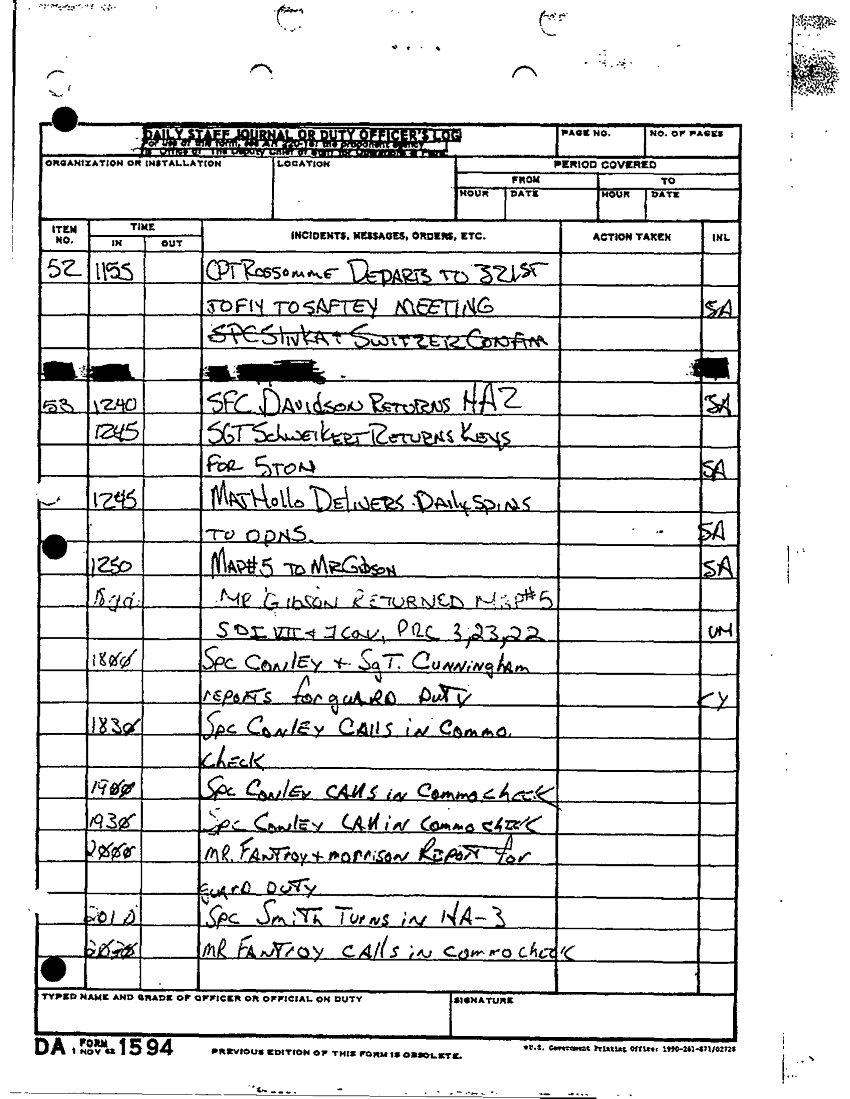 DAILY STAFF JOURNAL OR DUTY OFFICER'S LOG
For use of this form, see AR 220-15; the proponent agency
is Office of The Deputy Chief of Staff for Operations & Plans.
PAGE NO.
NO. OF PAGES
ORGANIZATION OR INSTALLATION
LOCATION
PERIOD COVERED
FROM
TO
HOUR
DATE
HOUR
DATE
ITEM NO.
TIME
IN
OUT
INCIDENTS, MESSAGES, ORDERS, ETC.
ACTION TAKEN
INL
52 1155 CPT ROSSOMME DEPARTS TO 321ST
TO SAFTEY MEETING SA
SPC SLIVKA + SWITZER CONFIM
53 1240 SFC DAVIDSON RETURNS HA2 SA
1245 SGT SCHWEIKERT RETURNS KEYS
FOR 5TON SA
1245 MAJ Hollo DELIVERS DAILY SPINS
TO OPNS. SA
1250 MAP#5 TO MR GIBSON SA
MR GIBSON RETURNED MAP#5
VII + 1 COU, PRC 3,23,22 UM
1800 SPC CONLEY + SGT. CUNNINGHAM
REPORTS for guARD DUTY CY
1830 SPC CONLEY CALLS iN COMMO.
CHECK
1900 SPC CONLEY CALLS iN COMMO CHECK
1930 SPC CONLEY CALL iN COMMO CHECK
2000 MR. FANTROY + MORRISON REPORT for
guARD DUTY
2010 SPC SMITH TURNS iN HA-3
2030 MR FANTROY CALLS iN COMMO CHECK
TYPED NAME AND GRADE OF OFFICER OR OFFICIAL ON DUTY
SIGNATURE
DA FORM 1 NOV 62 1594
PREVIOUS EDITION OF THIS FORM IS OBSOLETE.
*U.S. Government Printing Office: 1990-261-871/02728